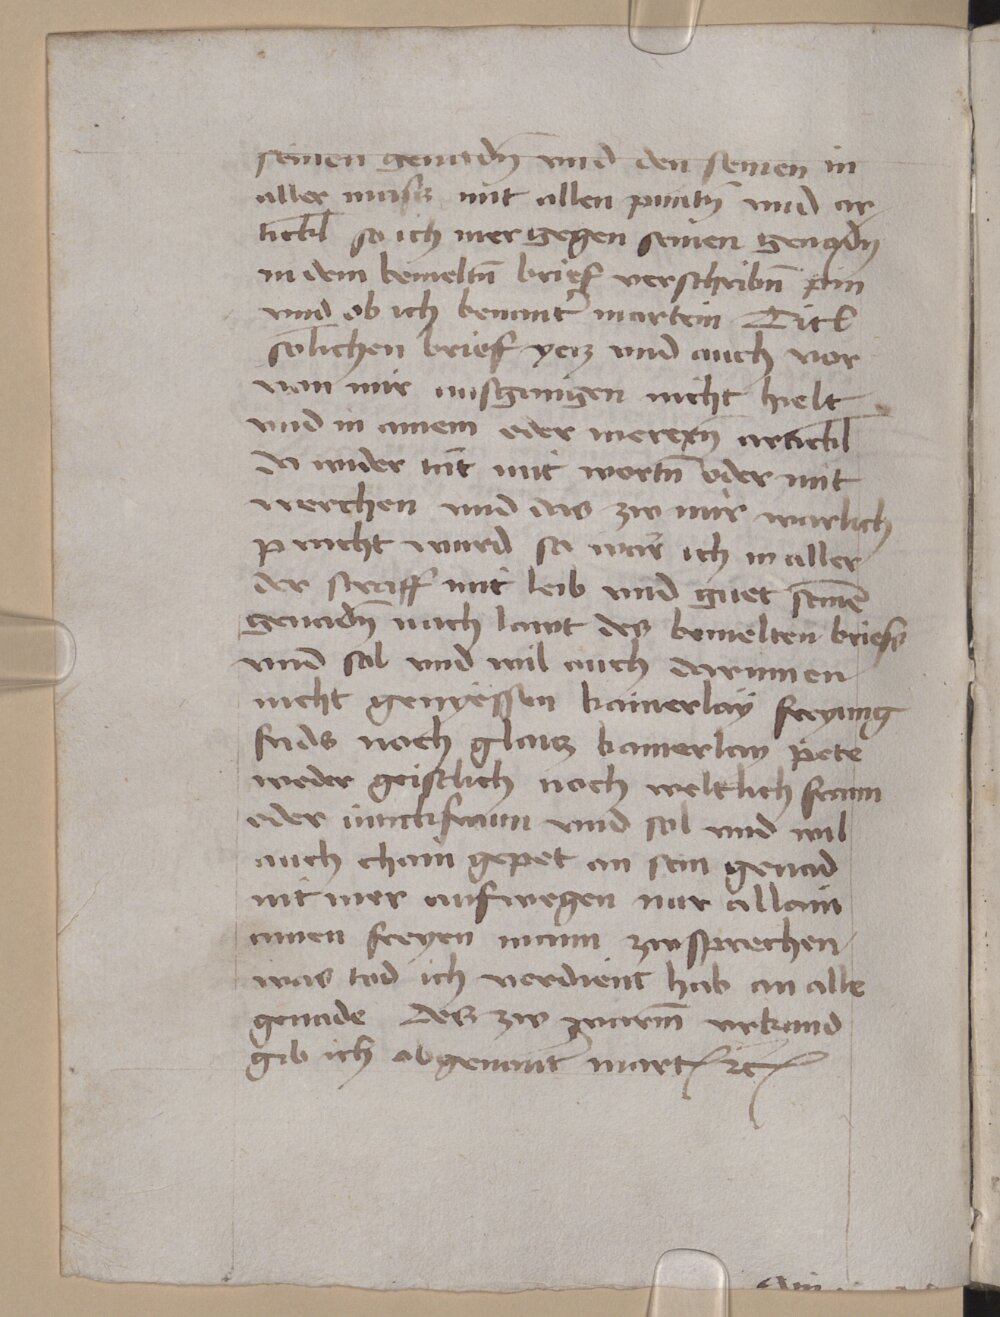 seinen genadn̄ vnd den seinen in
aller mass mit allen punctn̄ vnd ar
tickl so ich mer gegen seinen genadn̄
in dem bemeltn̄ brief verschribn̄ pin
vnd ob ich benant martein Titl
solichen brief yetz vnd auch vor
von mir ausgangen nicht hielt
vnd in ainem oder merern̄ artickl
da wider tät mit wortn̄ oder mit
werchen vnd das zw mir warlich
pracht wurd so wär ich in aller
der straff mit leib vnd guet seinē
genadn̄ nach lawt des bemelten briefs
vnd sol vnd wil auch darinnen
nicht genyëssen kainerlaÿ freyung
frids noch glaitz kainerlay pete
weder geistlich noch weltlich frawn
oder iunckfrawn vnd sol vnd wil
auch chain gepet an sein genad
nit mer aufwegen nur allain
ainen freyen mann zwsprechen
was tod ich verdient hab an alle
genade Des zw warm̄ vrkund
gib ich obgenant mart ꝛc